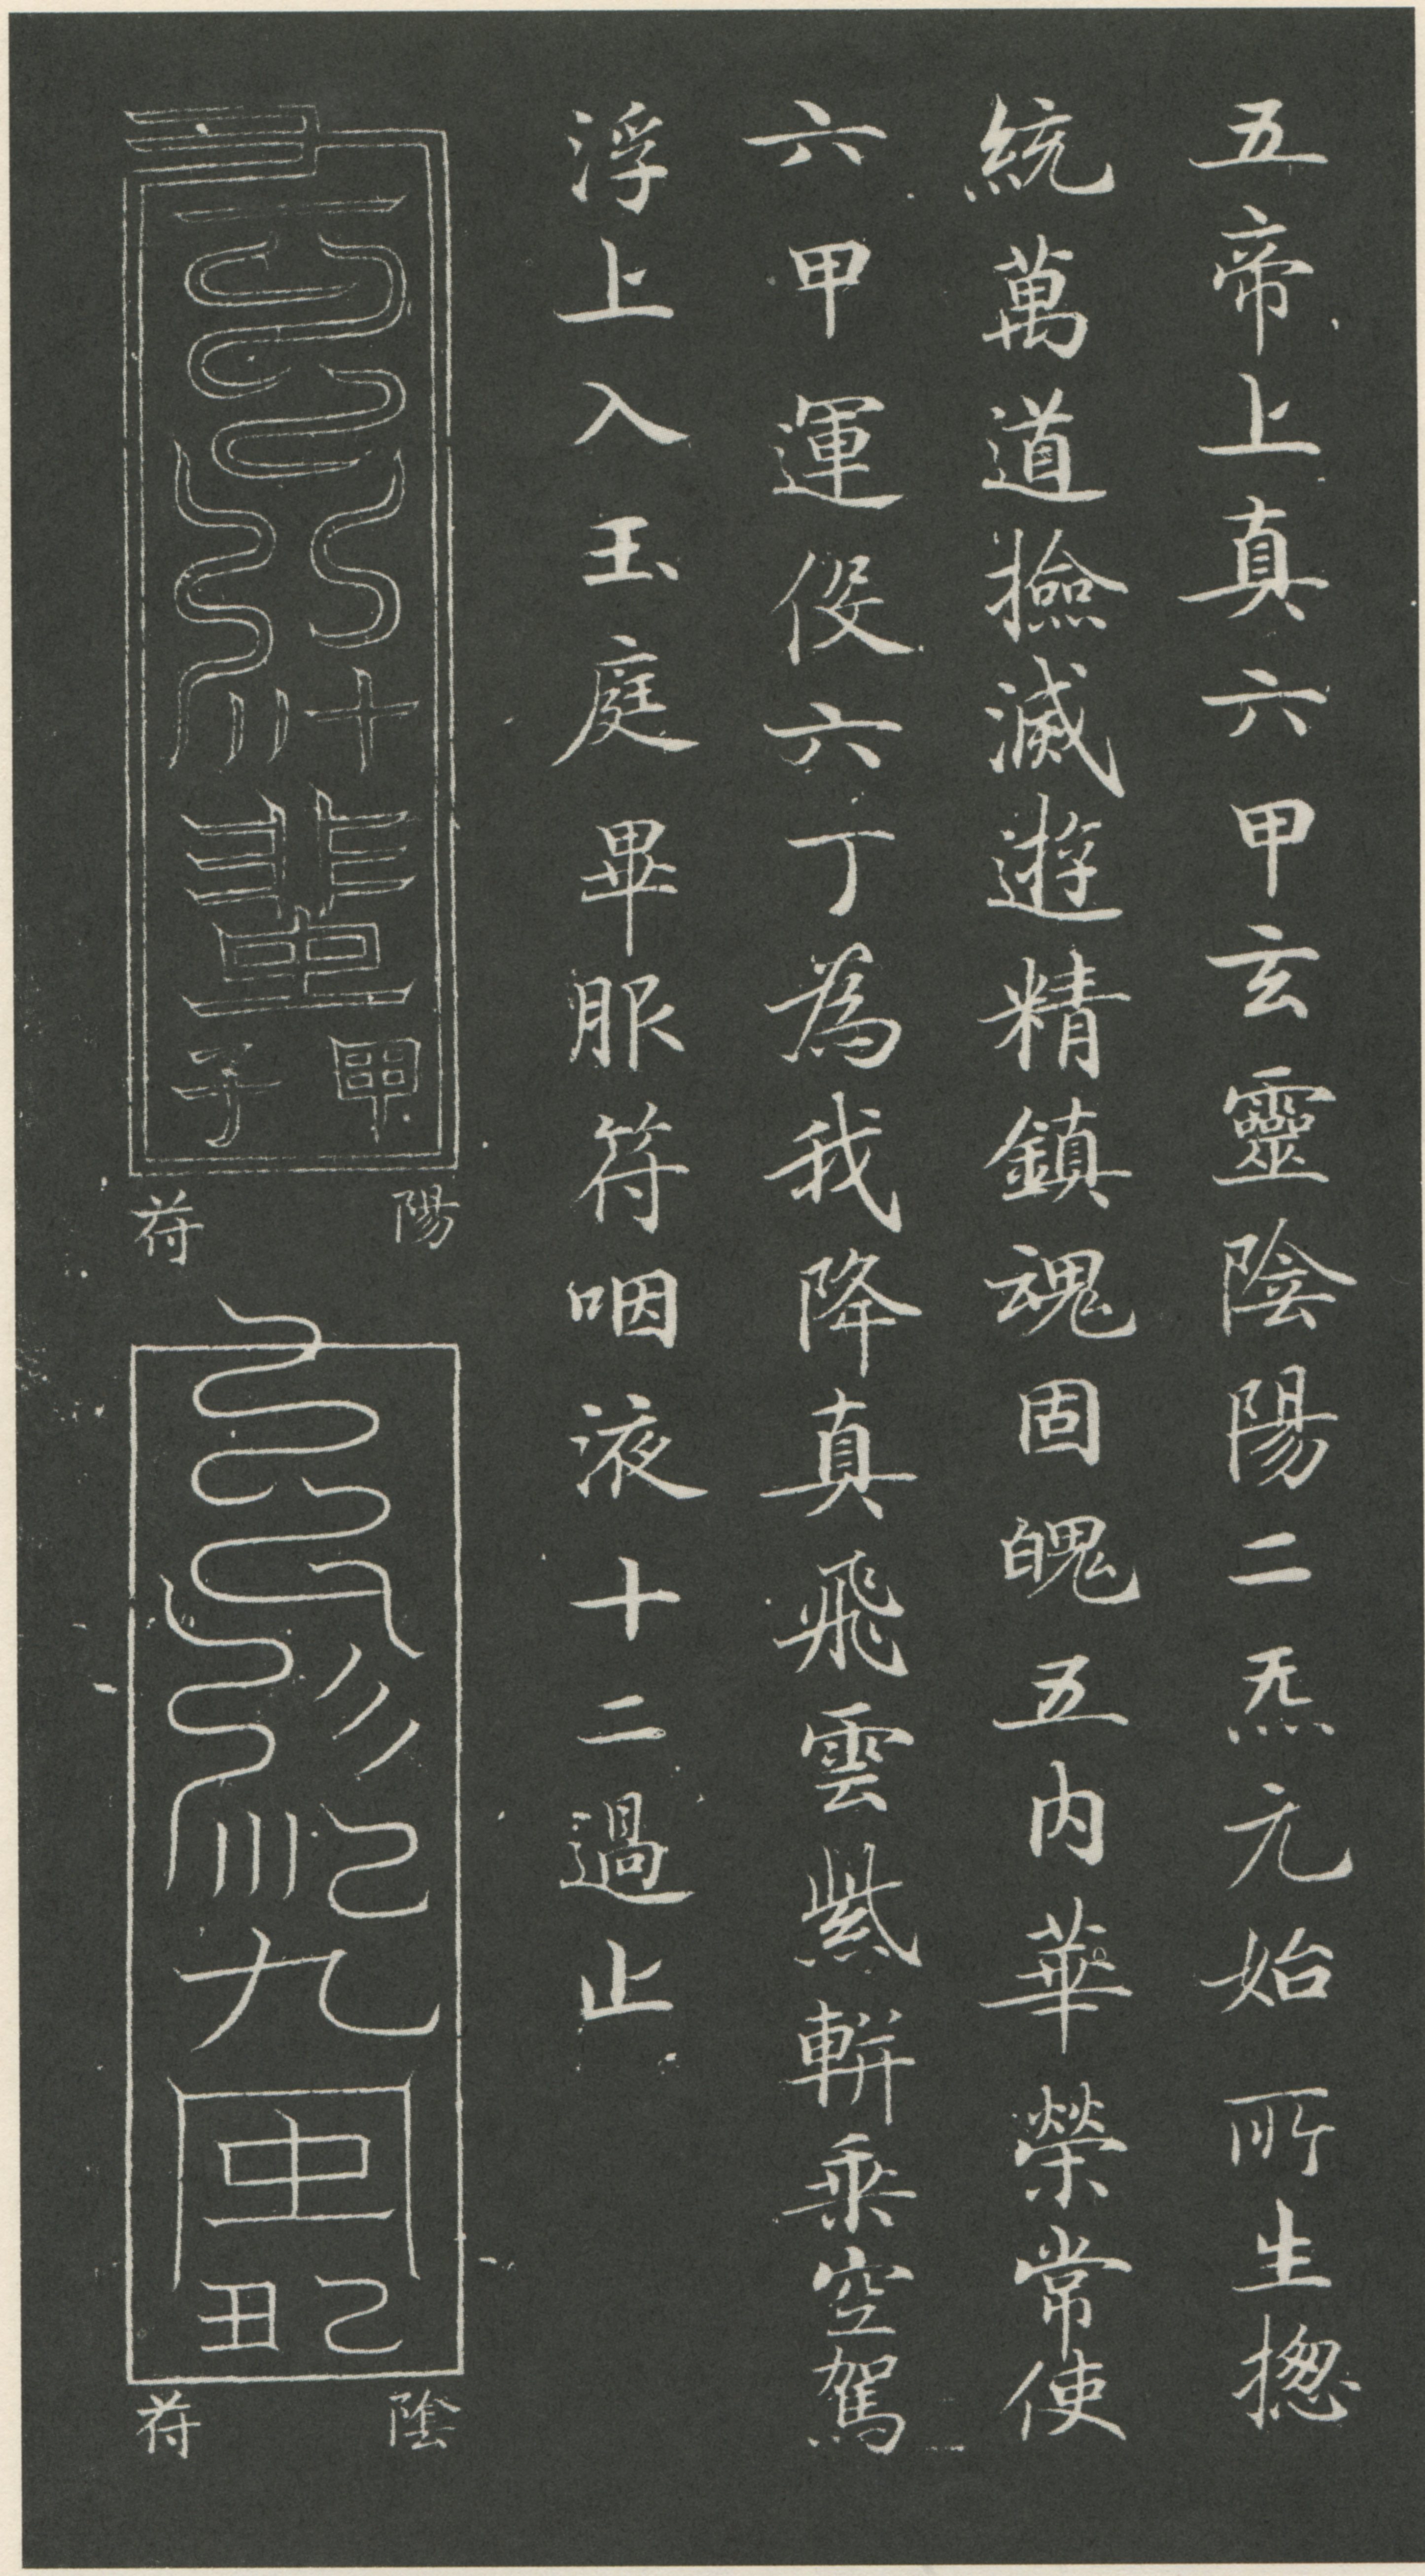 五帝上真六甲玄靈陰陽二炁元始所生揔
統萬道撿滅遊精鎮魂固魄五内華榮常使
六甲運役六丁為我降真飛雲紫軿乗空駕
浮上入玉庭畢服符咽液十二過止
甲子
陽符
己丑
陰符